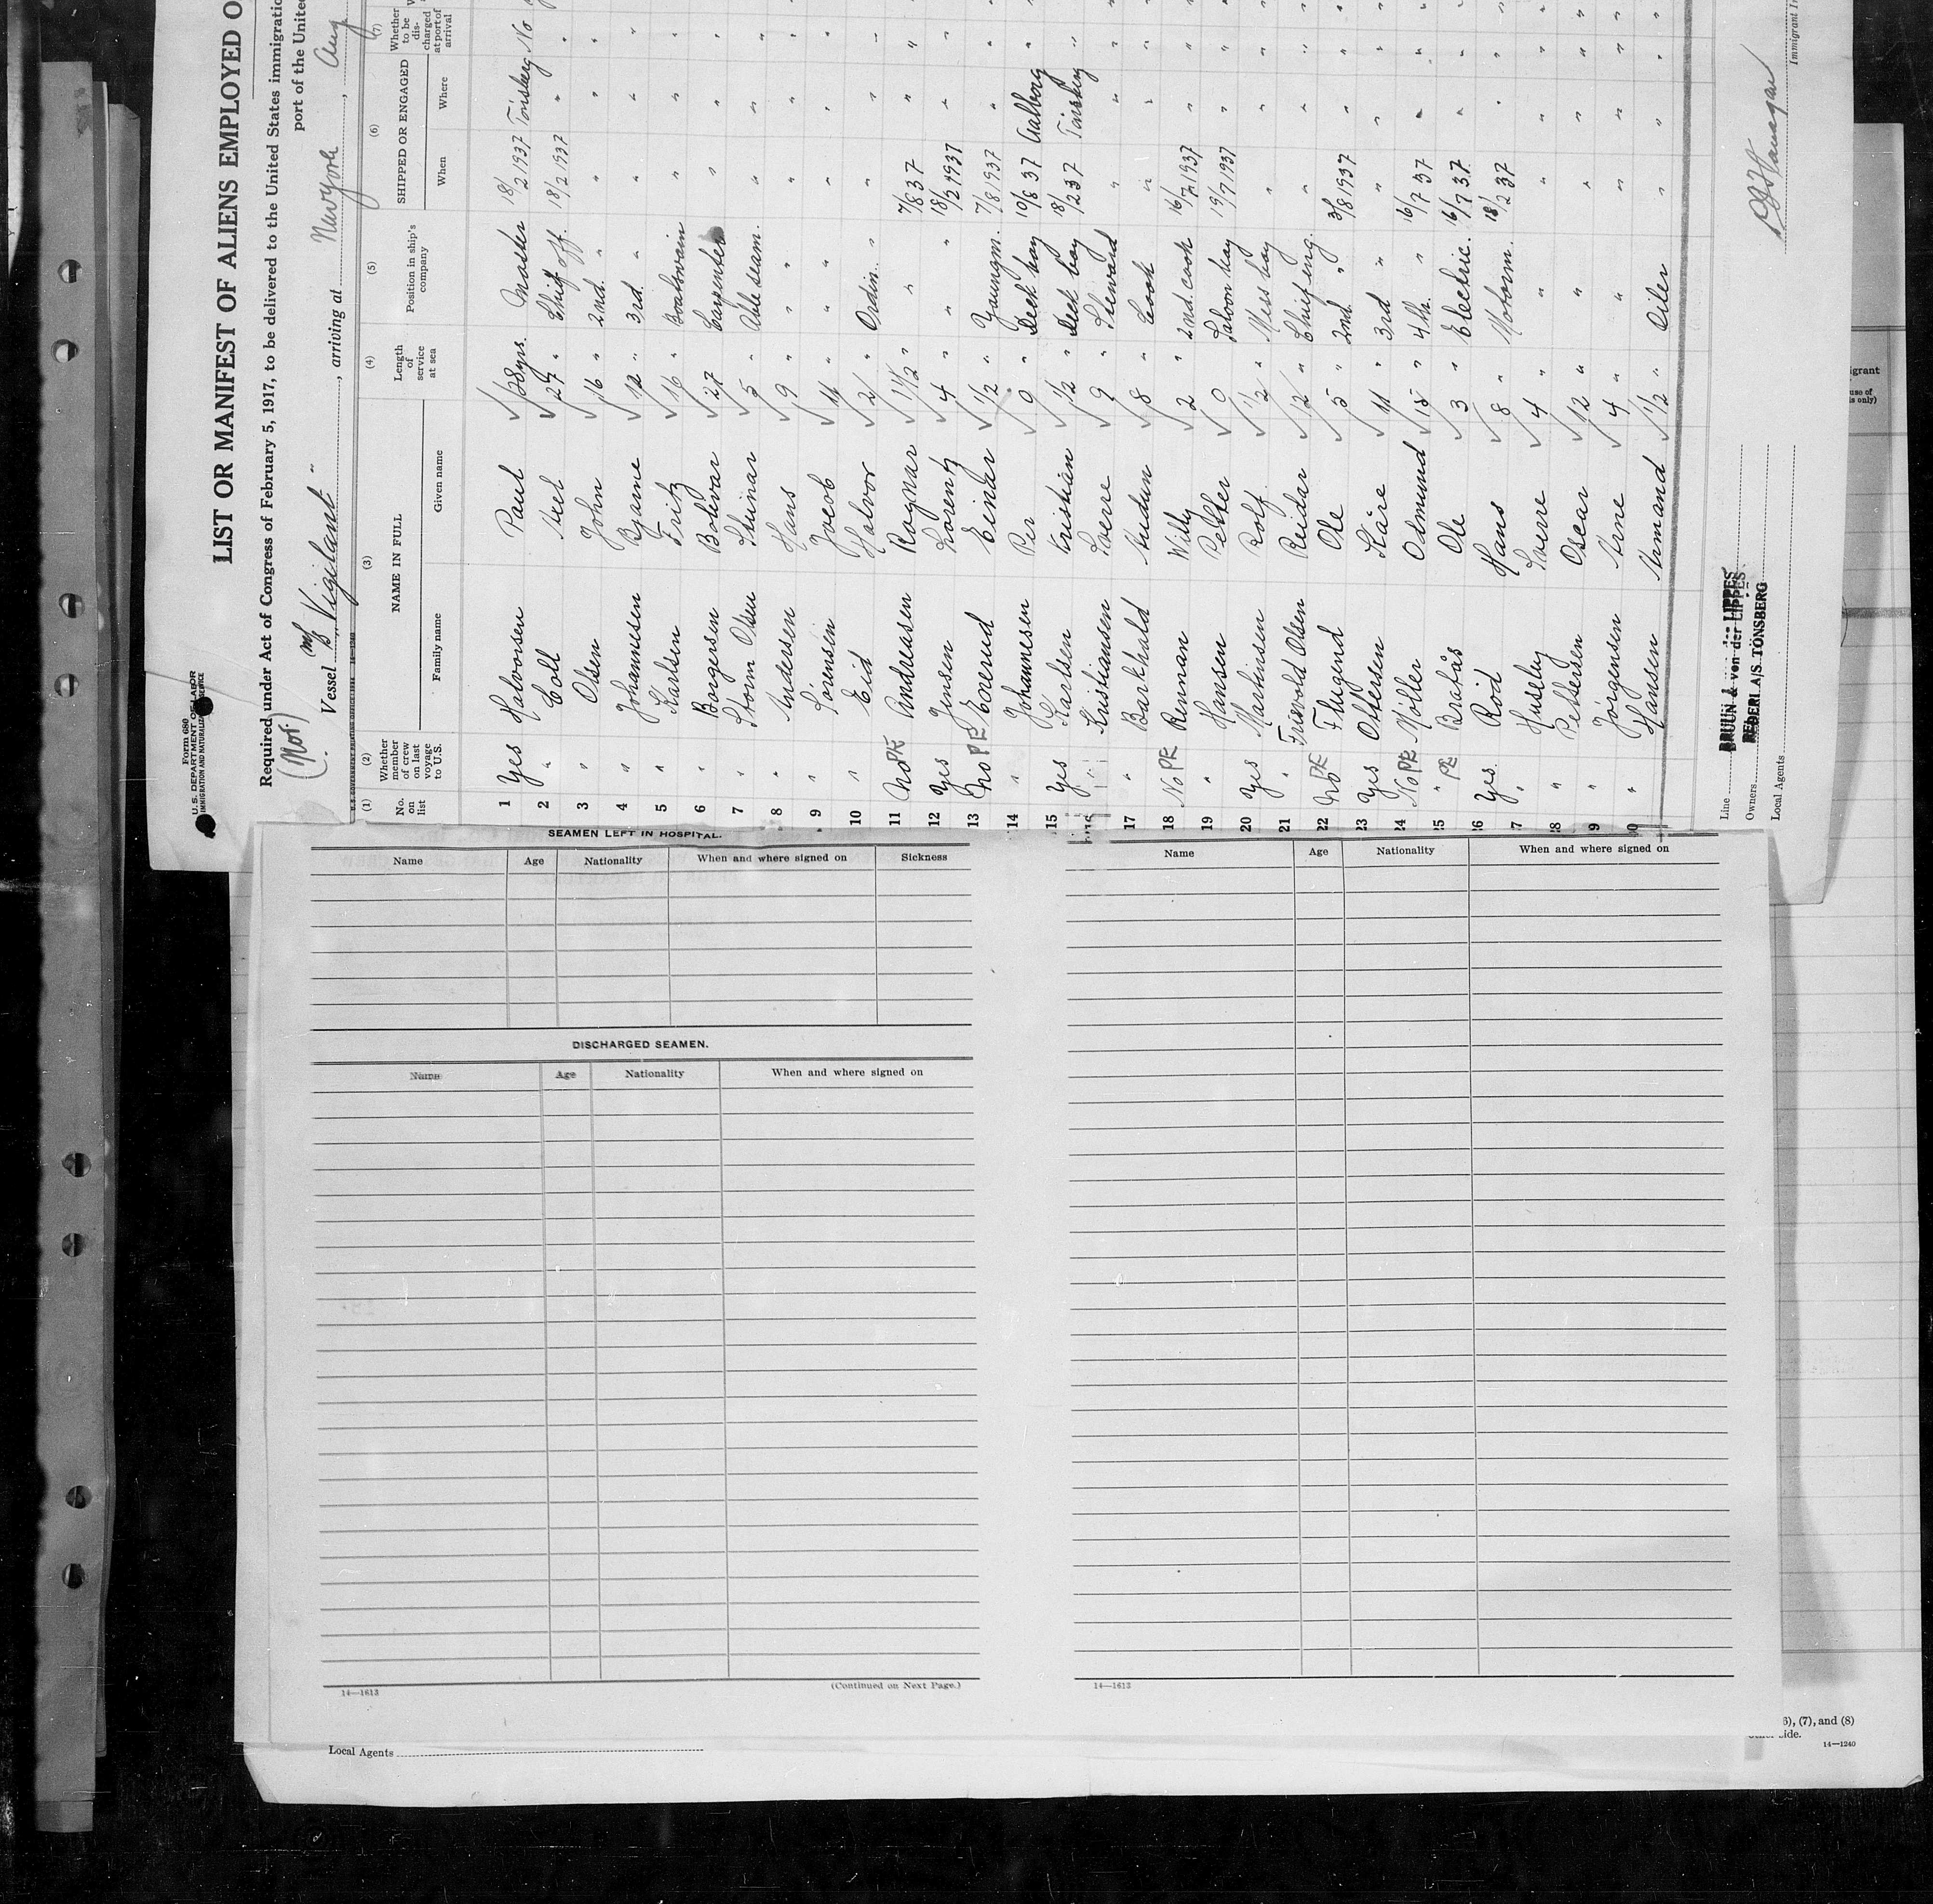 Form 680
U.S. DEPARTMENT OF LABOR
IMMIGRATION AND NATURALIZATION SERVICE
LIST OR MANIFEST OF ALIENS EMPLOYED O
Required under Act of Congress of February 5, 1917, to be delivered to the United States immigration
port of the United
(Nor.)
Vessel M/S "Vigilant", arriving at Newyork, Aug
(1) No. on list
(2) Whether member of crew on last voyage to U.S.
(3) NAME IN FULL
Family name Given name
(4) Length of service at sea
(5) Position in ship's company
(6) SHIPPED OR ENGAGED
When Where
(7) Whether to be discharged at port of arrival
1 Yes Halvorsen Paul √ 28 yrs. Master 18/2 1937 Tönsberg No
2 " Coll √ 27 " Chief off. 18/2 1937 " "
3 " Olsen John √ 16 " 2nd. " " " "
4 " Johannesen Bjarne √ 12 " 3rd. " " " "
5 " Karlsen Fritz √ 16 " Boatswain " " "
6 " Borgersen Bolivar √ 27 " Carpenter " " "
7 " Storm Olsen Steinar √ 5 " Able seam. " " "
8 " Andersen Hans √ 9 " " " " "
9 " Sörensen Jacob √ 11 " " " " "
10 " Eid Halvor √ 2 " Ordin. " " " "
11 No PE Andreasen Ragnar √ 1 1/2 " " 7/8 37 " "
12 Yes Jensen Lorentz √ 4 " " 18/2 1937 " "
13 No PE Everud Einar √ 1/2 " Youngm. 7/8 1937 " "
14 " Johannesen Per √ 0 " Deck boy 10/8 37 Aalborg "
15 Yes Karlsen Kristian √ 1/2 " Deck boy 18/2 37 Tönsberg "
16 " Kristiansen Sverre √ 9 " Steward " " "
17 " Barkhald Audun √ 8 " Cook " " "
18 No PE Rennan Willy √ 2 " 2nd. cook 16/7 1937 " "
19 " Hansen Petter √ 0 Saloon boy 19/7 1937 " "
20 Yes Martinsen Rolf √ 1/2 " Mess boy " " "
21 " Friisvold Olsen Reidar √ 12 " Chief eng. " " "
22 No PE Flugund Ole √ 5 " 2nd. " 3/8 1937 " "
23 Yes Ottersen Kåre √ 11 " 3rd " " " "
24 No PE Möller Osmund √ 15 " 4th. " 16/7 37 " "
25 " PE Brafås Ole √ 3 " Electric. 16/7 37 " "
26 Yes. Röd Hans √ 8 " Motorm. 18/2 37 " "
7 " Huseby Sverre √ 4 " " " " "
8 " Pettersen Oscar √ 12 " " " " "
9 " Jörgensen Arne √ 4 " " " " "
0 " Hansen Armand √ 1/2 " Oiler " " "
Line BRUUN & von der LIPPES
BRUUN & von der LIPPES
Owners REDERI A/S. TÖNSBERG
Local Agents
Immigrant I
SEAMEN LEFT IN HOSPITAL.
Name Age Nationality When and where signed on Sickness
DISCHARGED SEAMEN.
Name Age Nationality When and where signed on
14—1613
(Continued on Next Page.)
Name Age Nationality When and where signed on
14—1613
Local Agents
igrant
use of
is only)
6), (7), and (8)
other side.
14—1240